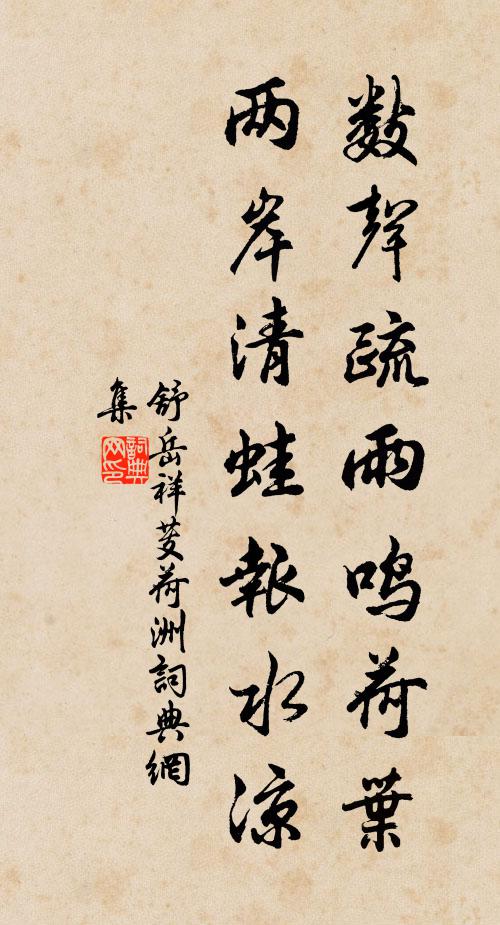 數聲疏雨鳴荷葉
两岸清蛙報水涼
舒岳祥芰荷洲詞典網
集
詞典网印